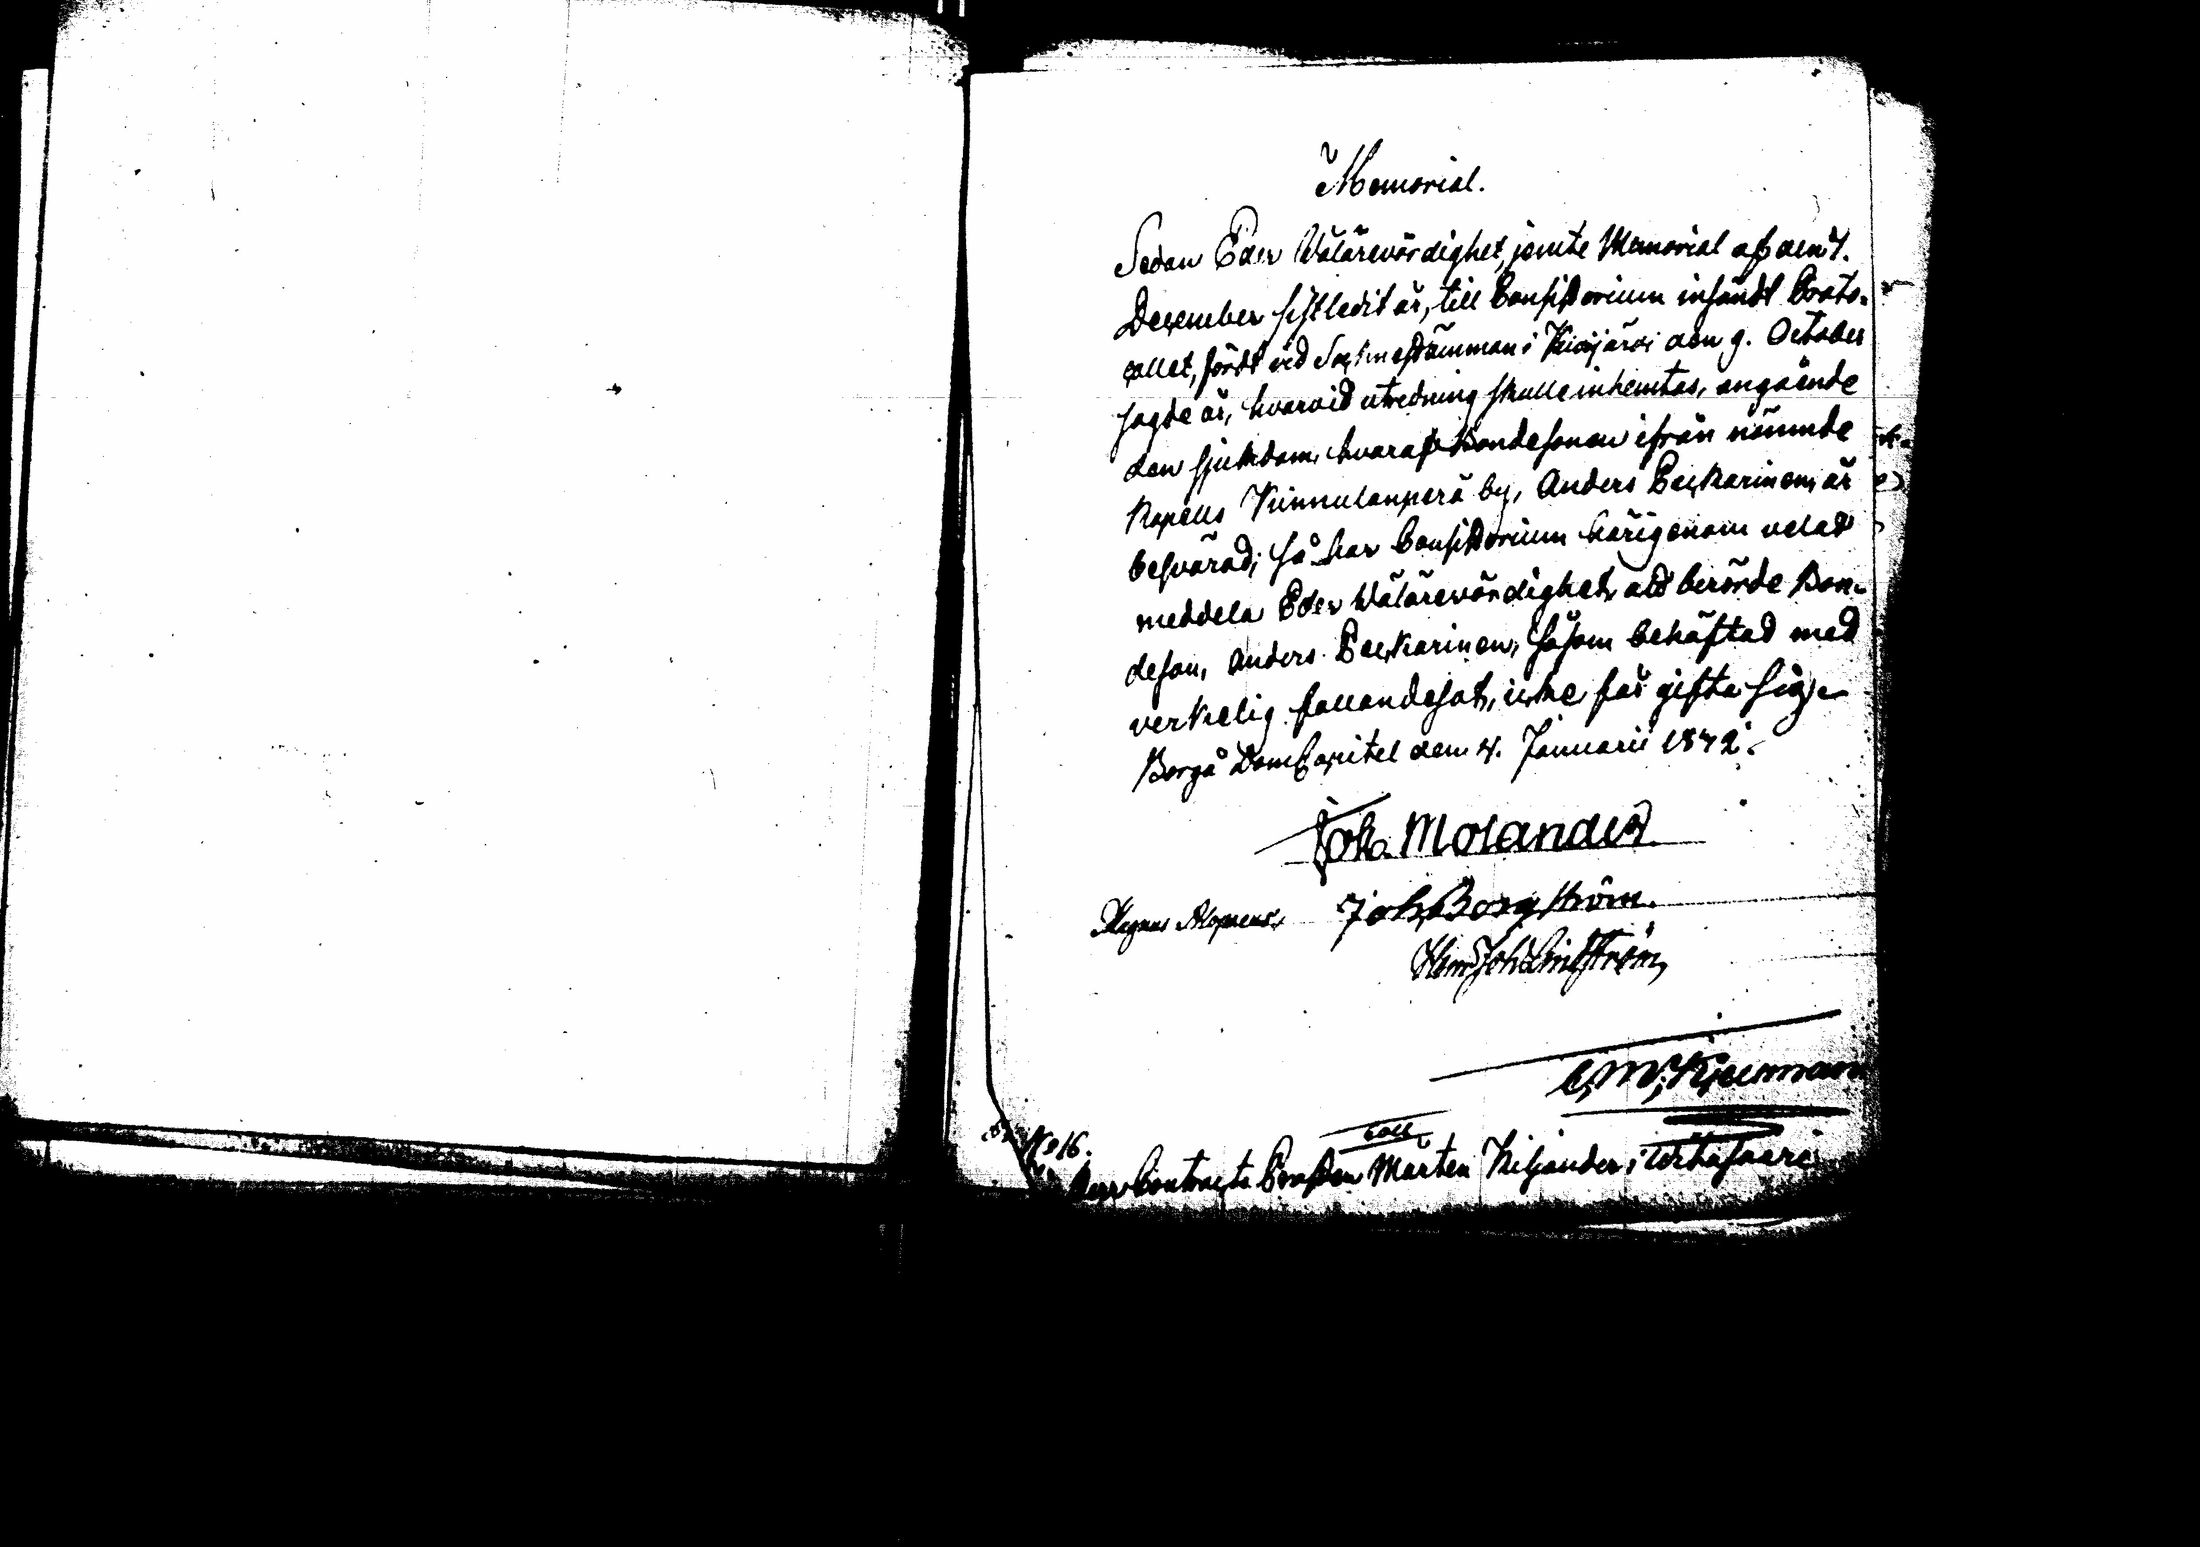 Memorial.
Sedan Eder Wälärevördighet, jemte Memorial af den 7.
December sistledit år, till Consistorium insändt Proto-
collet, fördt vid Socknestämman i Kivijärvi den 9. October
sagde år, hvarvid utredning skulle inhemtas, angående
den sjukdom, hvaraf Bondesonen ifrån nämnde
Kapells Kinnulanperä by, Anders Peckarinen, är
besvärad; så har Consistorium härigenom velat
meddela Eder Wälärevördighet, att berörde Bon-
deson, Anders Peckarinen, såsom behäftad med
verkelig fallandesot, icke får gifta sig.
Borgå DomCapitel den 4. Januarii 1842.
Joh. Molander.
Magnus Alopaeus. Joh. Borgström.
Joh Lindström
No 16.
Coll
Herr Contracts Prosten Mårten Kiljander i Witasaari